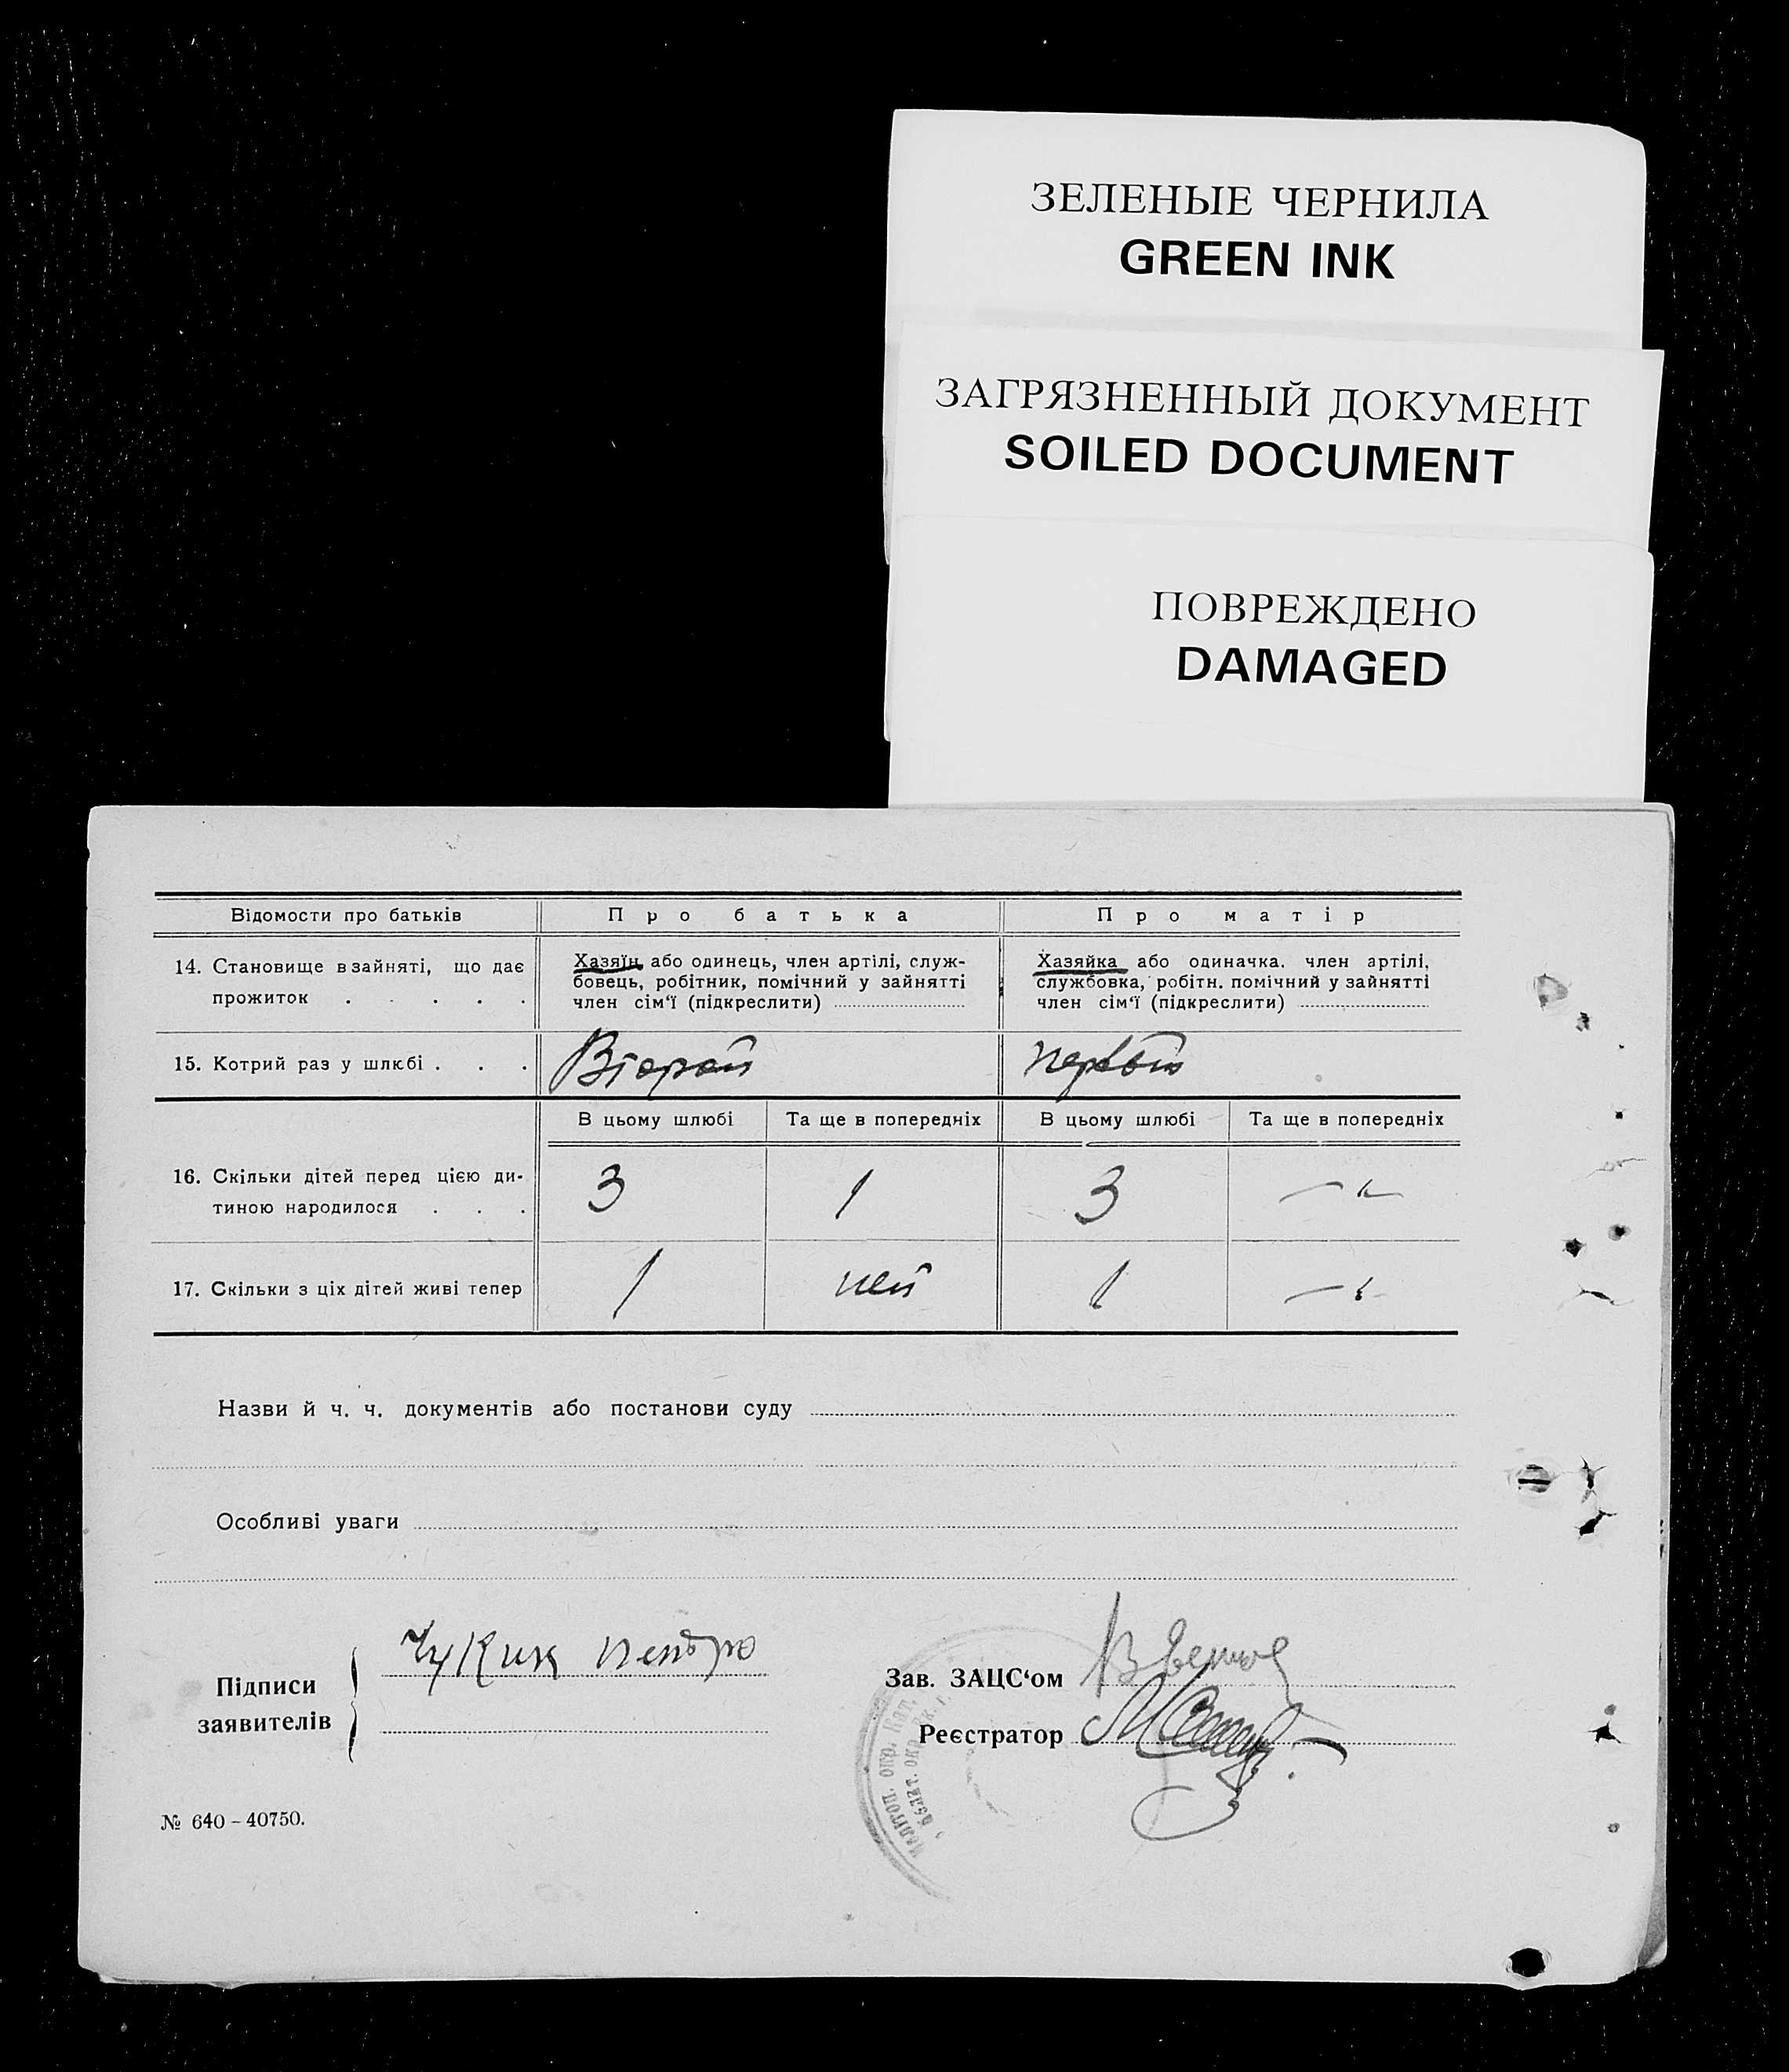 ЗЕЛЕНЫЕ ЧЕРНИЛА
GREEN INK
ЗАГРЯЗНЕННЫЙ ДОКУМЕНТ
SOILED DOCUMENT
ПОВРЕЖДЕНО
DAMAGED
Відомости про батьків Про батька Про матір
14. Становище в зайняті, що дає
прожиток . . . . .
Хазяїн або одинець, член артілі, служ-
бовець, робітник, помічний у зайнятті
член сім‘ї (підкреслити)
Хазяйка або одиначка. член артілі,
службовка, робітн. помічний у зайнятті
член сім‘ї (підкреслити)
15. Котрий раз у шлюбі . . . Второй первый
В цьому шлюбі Та ще в попередніх В цьому шлюбі Та ще в попередніх
16. Скільки дітей перед цією ди-
тиною народилося . . . 3 1 3 —"—
17. Скільки з ціх дітей живі тепер 1 нет 1 —"—
Назви й ч. ч. документів або постанови суду
Особливі уваги
Підписи
заявителів
Чукик Петро
Зав. ЗАЦС‘ом
Реєстратор
№ 640 – 40750.